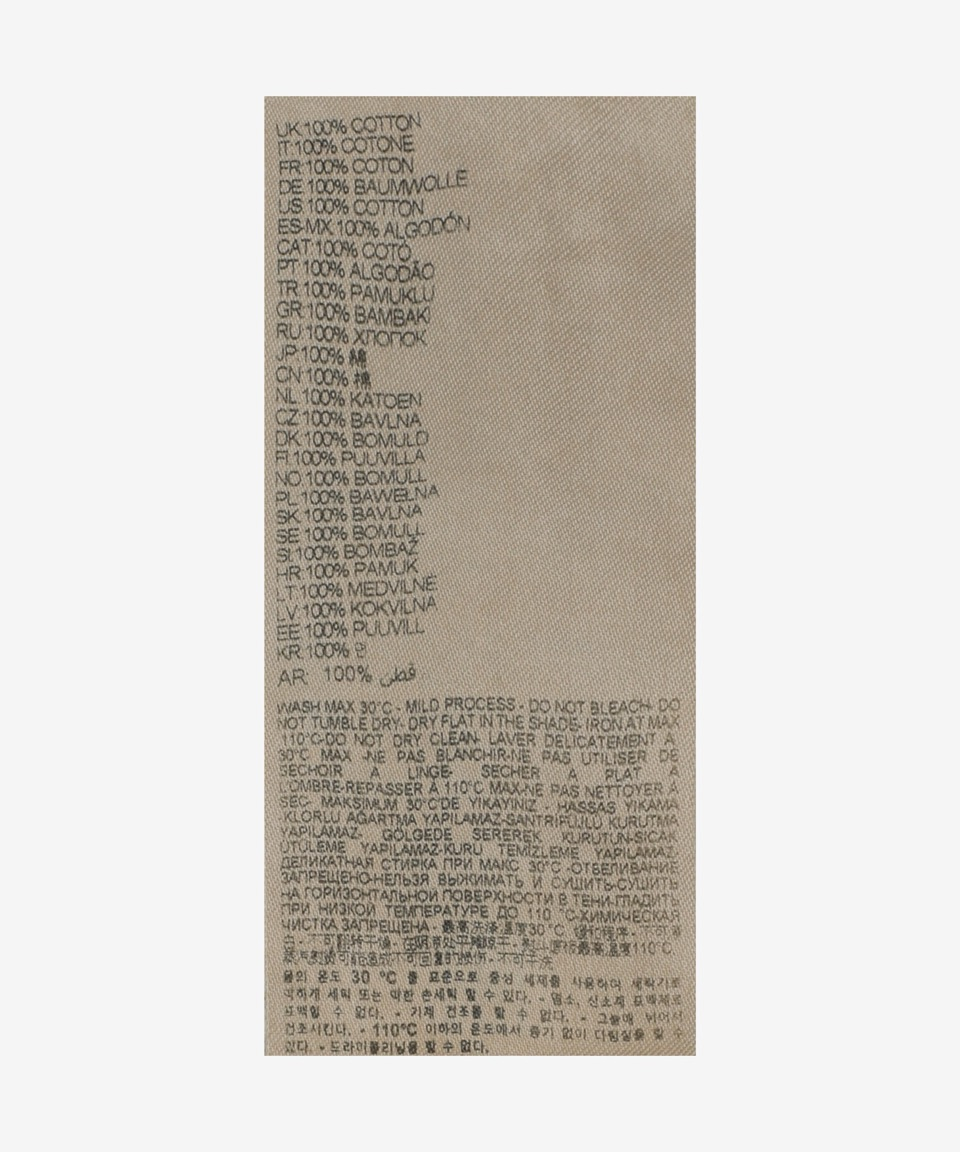 UK:100% COTTON
IT:100% COTONE
FR:100% COTON
DE:100% BAUMWOLLE
US:100% COTTON
ES-MX:100% ALGODÓN
CAT:100% COTÓ
PT:100% ALGODÃO
TR:100% PAMUKLU
GR:100% BAMBAKI
RU:100% ХЛОПОК
JP:100% 綿
CN:100% 棉
NL:100% KATOEN
CZ:100% BAVLNA
DK:100% BOMULD
FI:100% PUUVILLA
NO:100% BOMULL
PL:100% BAWEŁNA
SK:100% BAVLNA
SE:100% BOMULL
SI:100% BOMBAŽ
HR:100% PAMUK
LT:100% MEDVILNĖ
LV:100% KOKVILNA
EE:100% PUUVILL
KR:100% 면
AR: 100% قطن
WASH MAX 30°C - MILD PROCESS - DO NOT BLEACH- DO
NOT TUMBLE DRY- DRY FLAT IN THE SHADE- IRON AT MAX
110°C-DO NOT DRY CLEAN- LAVER DELICATEMENT A
30°C MAX -NE PAS BLANCHIR-NE PAS UTILISER DE
SECHOIR A LINGE- SECHER A PLAT A
L'OMBRE-REPASSER À 110°C MAX-NE PAS NETTOYER À
SEC- MAKSIMUM 30°C'DE YIKAYINIZ - HASSAS YIKAMA
-KLORLU AĞARTMA YAPILAMAZ-SANTRIFUJLU KURUTMA
YAPILAMAZ- GÖLGEDE SEREREK KURUTUN-SICAK
ÜTÜLEME YAPILAMAZ-KURU TEMİZLEME YAPILAMAZ
ДЕЛИКАТНАЯ СТИРКА ПРИ МАКС 30°C -ОТБЕЛИВАНИЕ
ЗАПРЕЩЕНО-НЕЛЬЗЯ ВЫЖИМАТЬ И СУШИТЬ-СУШИТЬ
НА ГОРИЗОНТАЛЬНОЙ ПОВЕРХНОСТИ В ТЕНИ-ГЛАДИТЬ
ПРИ НИЗКОЙ ТЕМПЕРАТУРЕ ДО 110 °C-ХИМИЧЕСКАЯ
ЧИСТКА ЗАПРЕЩЕНА - 最高洗涤温度30°C
110°C
물의 온도 30 °C 를 표준으로 중성 세제를 사용하여 세탁기로
약하게 세탁 또는 약한 손세탁 할 수 있다. - 염소, 산소계 표백제로
표백할 수 없다. - 기계 건조를 할 수 없다. - 그늘에 뉘어서
건조시킨다. - 110°C 이하의 온도에서 증기 없이 다림질을 할 수
있다. - 드라이클리닝을 할 수 없다.